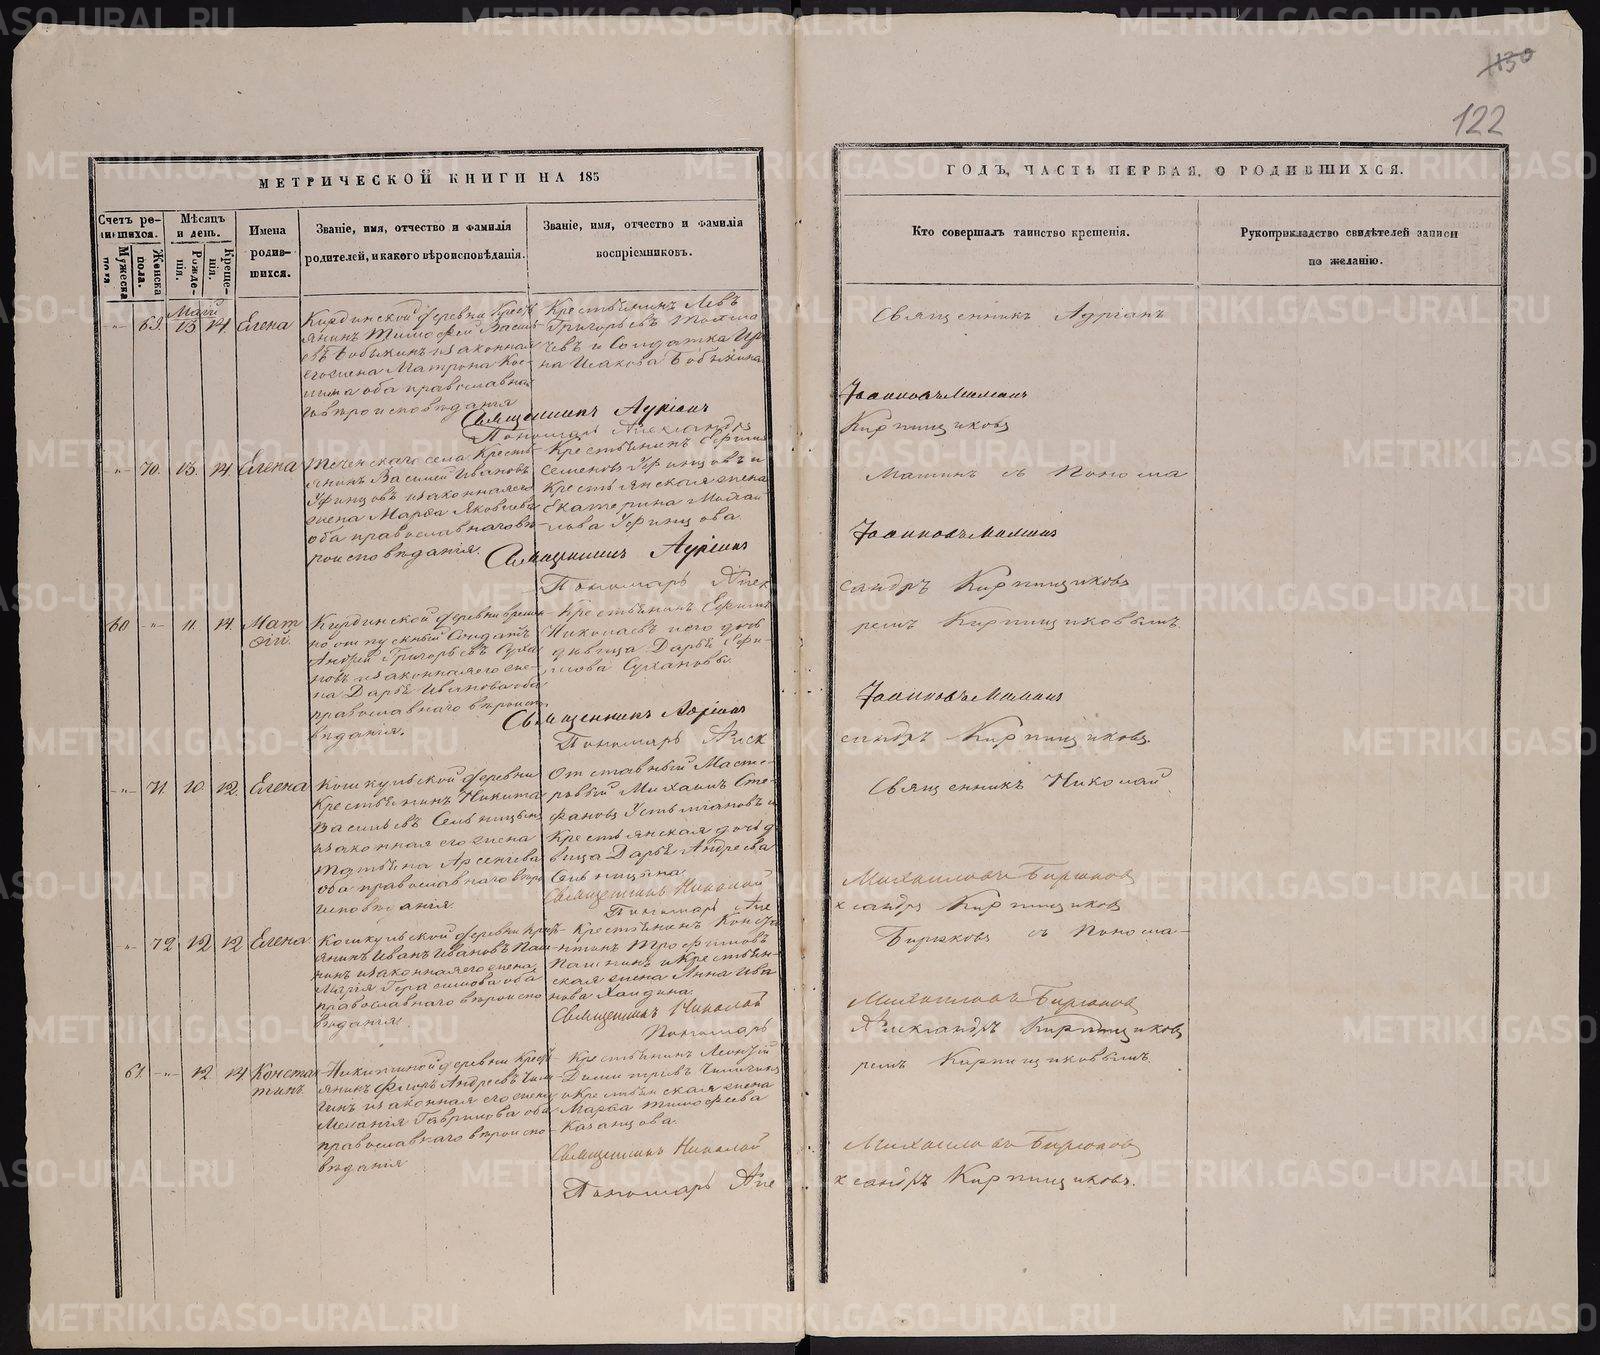 130
122
МЕТРИЧЕСКОЙ КНИГИ НА 185
ГОДЪ, ЧАСТЬ ПЕРВАЯ, О РОДИВШИХСЯ.
Счетъ ро-
дившихся.
Мужеска
пола
Женска
пола.
Мѣсяцъ
и день.
Рожде-
нія.
Креще-
нія.
Имена
родив-
шихся.
Званіе, имя, отчество и фамилія
родителей, и какого вѣроисповѣданія.
Званіе, имя, отчество и фамилія
воспріемниковъ.
Кто совершалъ таинство крещенія.
Рукоприкладство свидѣтелей записи
по желанію.
69. 13 14. Елена
Кирдинской деревни Крест
янинъ Тимофей Василь
евъ Бобыкинъ и законная
его жена Матрона
оба православна
го вѣроисповѣданія
Крестьянинъ Левъ
Григорьевъ
и Солдатка Ири
на Исакова Бобыкина
Священникъ Адріанъ
Священникъ Адріанъ
Іоанновъ Маминъ
Пономарь Александръ
Кирпищиковъ
70. 13. 14. Елена
Теченскаго села Кресть
янинъ Василей Ивановъ
Уфинцовъ и законная его
жена Марѳа Яковлева
оба православнаго вѣ
роисповѣданія.
Крестьянинъ
Семеновъ Уфинцовъ и
Крестьянская жена
Екатерина Михаи
лова Уфинцова.
Маминъ съ Понома
Священникъ Адріанъ
Іоанновъ Маминъ
Пономарь Алек
сандръ Кирпищиковъ
60 11. 14. Мат
ѳій.
Кирдинской деревни времен
но отпускный Солдатъ
Андрей Григорьевъ Суха
новъ и законная его же
на Дарья Иванова оба
православнаго вѣроиспо
вѣданія.
Крестьянинъ Ефимъ
Николаевъ и его дочь
дѣвица Дарья Ефи
мова Сухановы.
ремъ Кирпищиковымъ
Священникъ Адріанъ
Іоанновъ Маминъ
Пономарь Алек
сандръ Кирпищиковъ.
71. 10. 12. Елена
Кошкульской деревни
Крестьянинъ Никита
Васильевъ Сельницынъ
и законная его жена
Татьяна Арсеньева
оба православнаго вѣро
исповѣданія.
Отставный Масте
ровый Михаилъ Сте
фановъ Устьянцовъ и
Крестьянская дочь дѣ
вица Дарья Андреева
Сельницына.
Священникъ Николай
Священникъ Николай
Михаиловъ Бирюковъ
Пономарь Але
ксандръ Кирпищиковъ
72 12 12 Елена
Кошкульской деревни Крест
янинъ Иванъ Ивановъ Паш
нинъ и законная его жена
Марія Герасимова оба
православнаго вѣроиспо
вѣданія.
Крестьянинъ Конста
нтинъ Трофимовъ
Пашнинъ и Крестьян
ская жена Анна Ива
нова Хаидина.
Бирюковъ съ Понома-
Священникъ Николай
Михаиловъ Бирюковъ
Пономарь
Александръ Кирпищиковъ
61. 12 14 Конста
тинъ.
Никитиной деревни Крест
янинъ Флоръ Андреевъ
и законная его жена
Меланія Гаврилова оба
православнаго вѣроиспо
вѣданія
Крестьянинъ Леонтій
Димитріевъ
и Крестьянская жена
Марѳа Тимофеева
Казанцова.
ремъ Кирпищиковымъ
Священникъ Николай
Михаиловъ Бирюковъ
Пономарь Але
ксандръ Кирпищиковъ.
METRIKI.GASO-URAL.RU